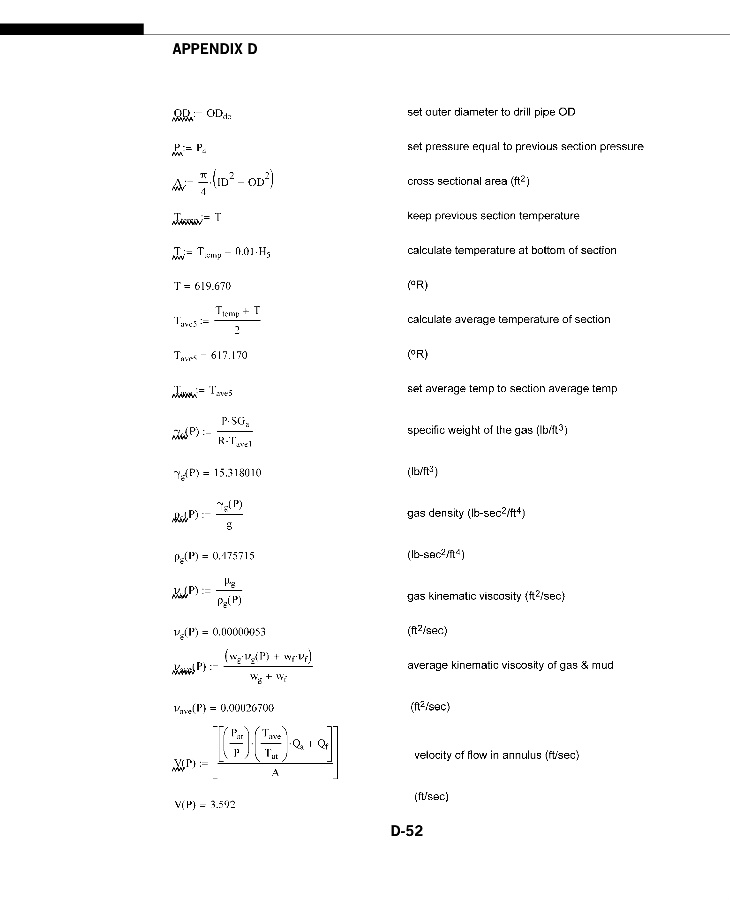 APPENDIX D
OD := OD_dc set outer diameter to drill pipe OD
P := P_4 set pressure equal to previous section pressure
A := π/4·(ID² − OD²) cross sectional area (ft²)
T_temp := T keep previous section temperature
T := T_temp + 0.01·H_5 calculate temperature at bottom of section
T = 619.670 (ºR)
T_ave5 := (T_temp + T)/2 calculate average temperature of section
T_ave5 = 617.170 (ºR)
T_ave := T_ave5 set average temp to section average temp
γ_g(P) := P·SG_a/(R·T_ave1) specific weight of the gas (lb/ft³)
γ_g(P) = 15.318010 (lb/ft³)
ρ_g(P) := γ_g(P)/g gas density (lb-sec²/ft⁴)
ρ_g(P) = 0.475715 (lb-sec²/ft⁴)
ν_g(P) := μ_g/ρ_g(P) gas kinematic viscosity (ft²/sec)
ν_g(P) = 0.00000053 (ft²/sec)
ν_ave(P) := (w_g·ν_g(P) + w_f·ν_f)/(w_g + w_f) average kinematic viscosity of gas & mud
ν_ave(P) = 0.00026700 (ft²/sec)
V(P) := [[(P_at/P)·(T_ave/T_at)·Q_a + Q_f]/A] velocity of flow in annulus (ft/sec)
V(P) = 3.592 (ft/sec)
D-52